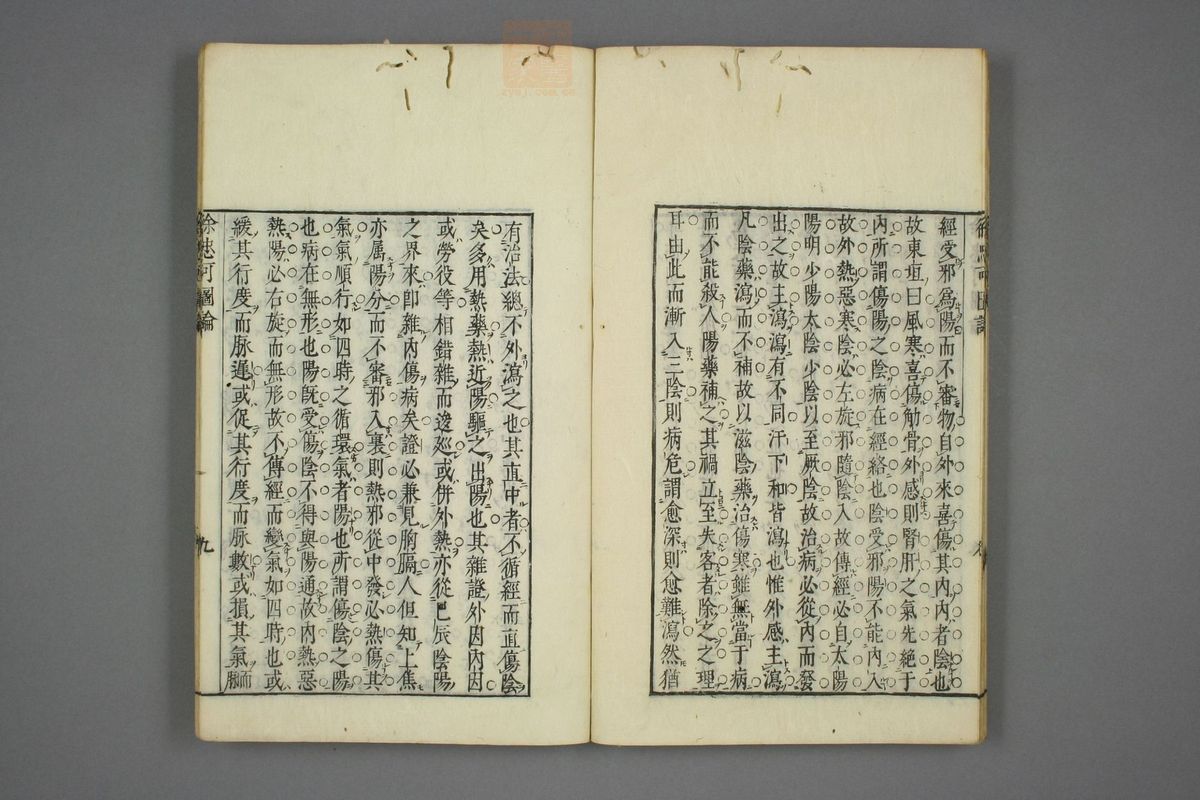 經受邪爲陽而不審物自外來喜傷其内内者陰也
故東垣曰風寒喜傷觔骨外感則腎肝之氣先絶于
内所謂傷陽之陰病在經絡也陰受邪陽不能内入
故外熱惡寒陰必左旋邪隨陰入故傳經必自太陽
陽明少陽太陰少陰以至厥陰故治病必從内而發
出之故主瀉瀉有不同汗下和皆瀉也惟外感主瀉
凡陰藥瀉而不補故以滋陰藥治傷寒雖無當于病
而不能殺人陽藥補之其禍立至失客者除之之理
耳由此而漸入三陰則病危謂愈深則愈難瀉然猶
有治法總不外瀉之也其直中者不循經而直傷陰
矣多用熱藥熱近陽驅之出陽也其雜證外因内因
或勞役等相錯雜而逡廵或併外熱亦從巳辰陰陽
之界來即雜内傷病矣證必兼見胸膈人但知上焦
亦属陽分而不審邪入裏則熱邪從中發必熱傷其
氣氣順行如四時之循環氣者陽也所謂傷陰之陽
也病在無形也陽旣受傷陰不得與陽通故内熱惡
熱陽必右旋而無形故不傳經而變氣如四時也或
緩其行度而脉遲或促其行度而脉數或損其氣而脈
徐忠可圖論
九